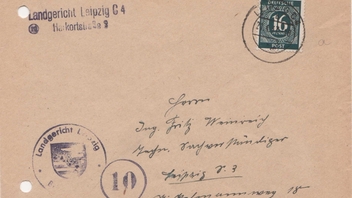 Landgericht Leipzig C 4
Harkortstraße 9
16
POST
Herrn
Ing. Fritz Weinreich
Techn. Sachverständiger
Leipzig S. 3
Landgericht Leipzig
10
18